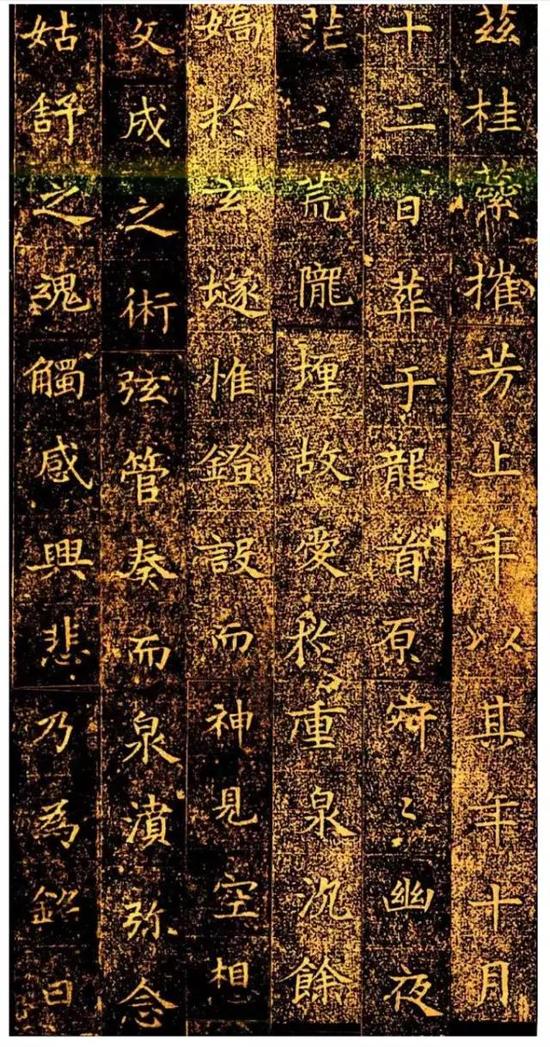 茲桂蘂摧芳上年以其年十月
十二日葬于龍首原𡧯〻幽夜
茫〻荒隴埋故愛於重泉沉餘
嬌於玄墜惟鐙設而神見空想
文成之術弦管奏而泉濆弥念
姑舒之魂觸感興悲乃為銘曰